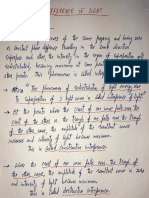 FERENCE OF LIGHT
of the same frequency and having zero
or constant phase difference travelling in the same direction
superpose each other, the intensity in the region of superposition
redistributed, becoming maximum at some points and minimum at
other points. This phenomenon is called interference of light
→ This phenomenon of redistribution of light energy due to
Superposition of 2 light waves is called interference of light
→ Where the crest of one wave falls over the crest of
the other wave, the amplitude of the resultant wave
and intensity of light becomes maximum.
This is called constructive interference.
→ Where the crest of one falls over the trough of
the other, the amplitude of the resultant wave is zero
and intensity of light becomes minimum.
This is called destructive interference.